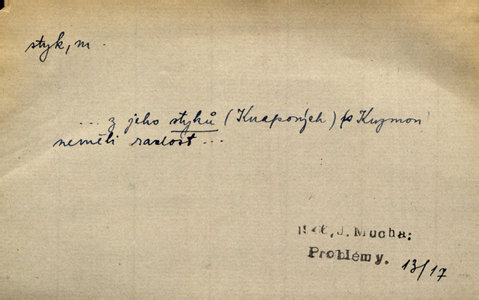 styk, m.
... z jeho styků (Knapových) (s Kuzmou)
neměli radost ...
1946, J. Mucha:
Problémy. 13/17